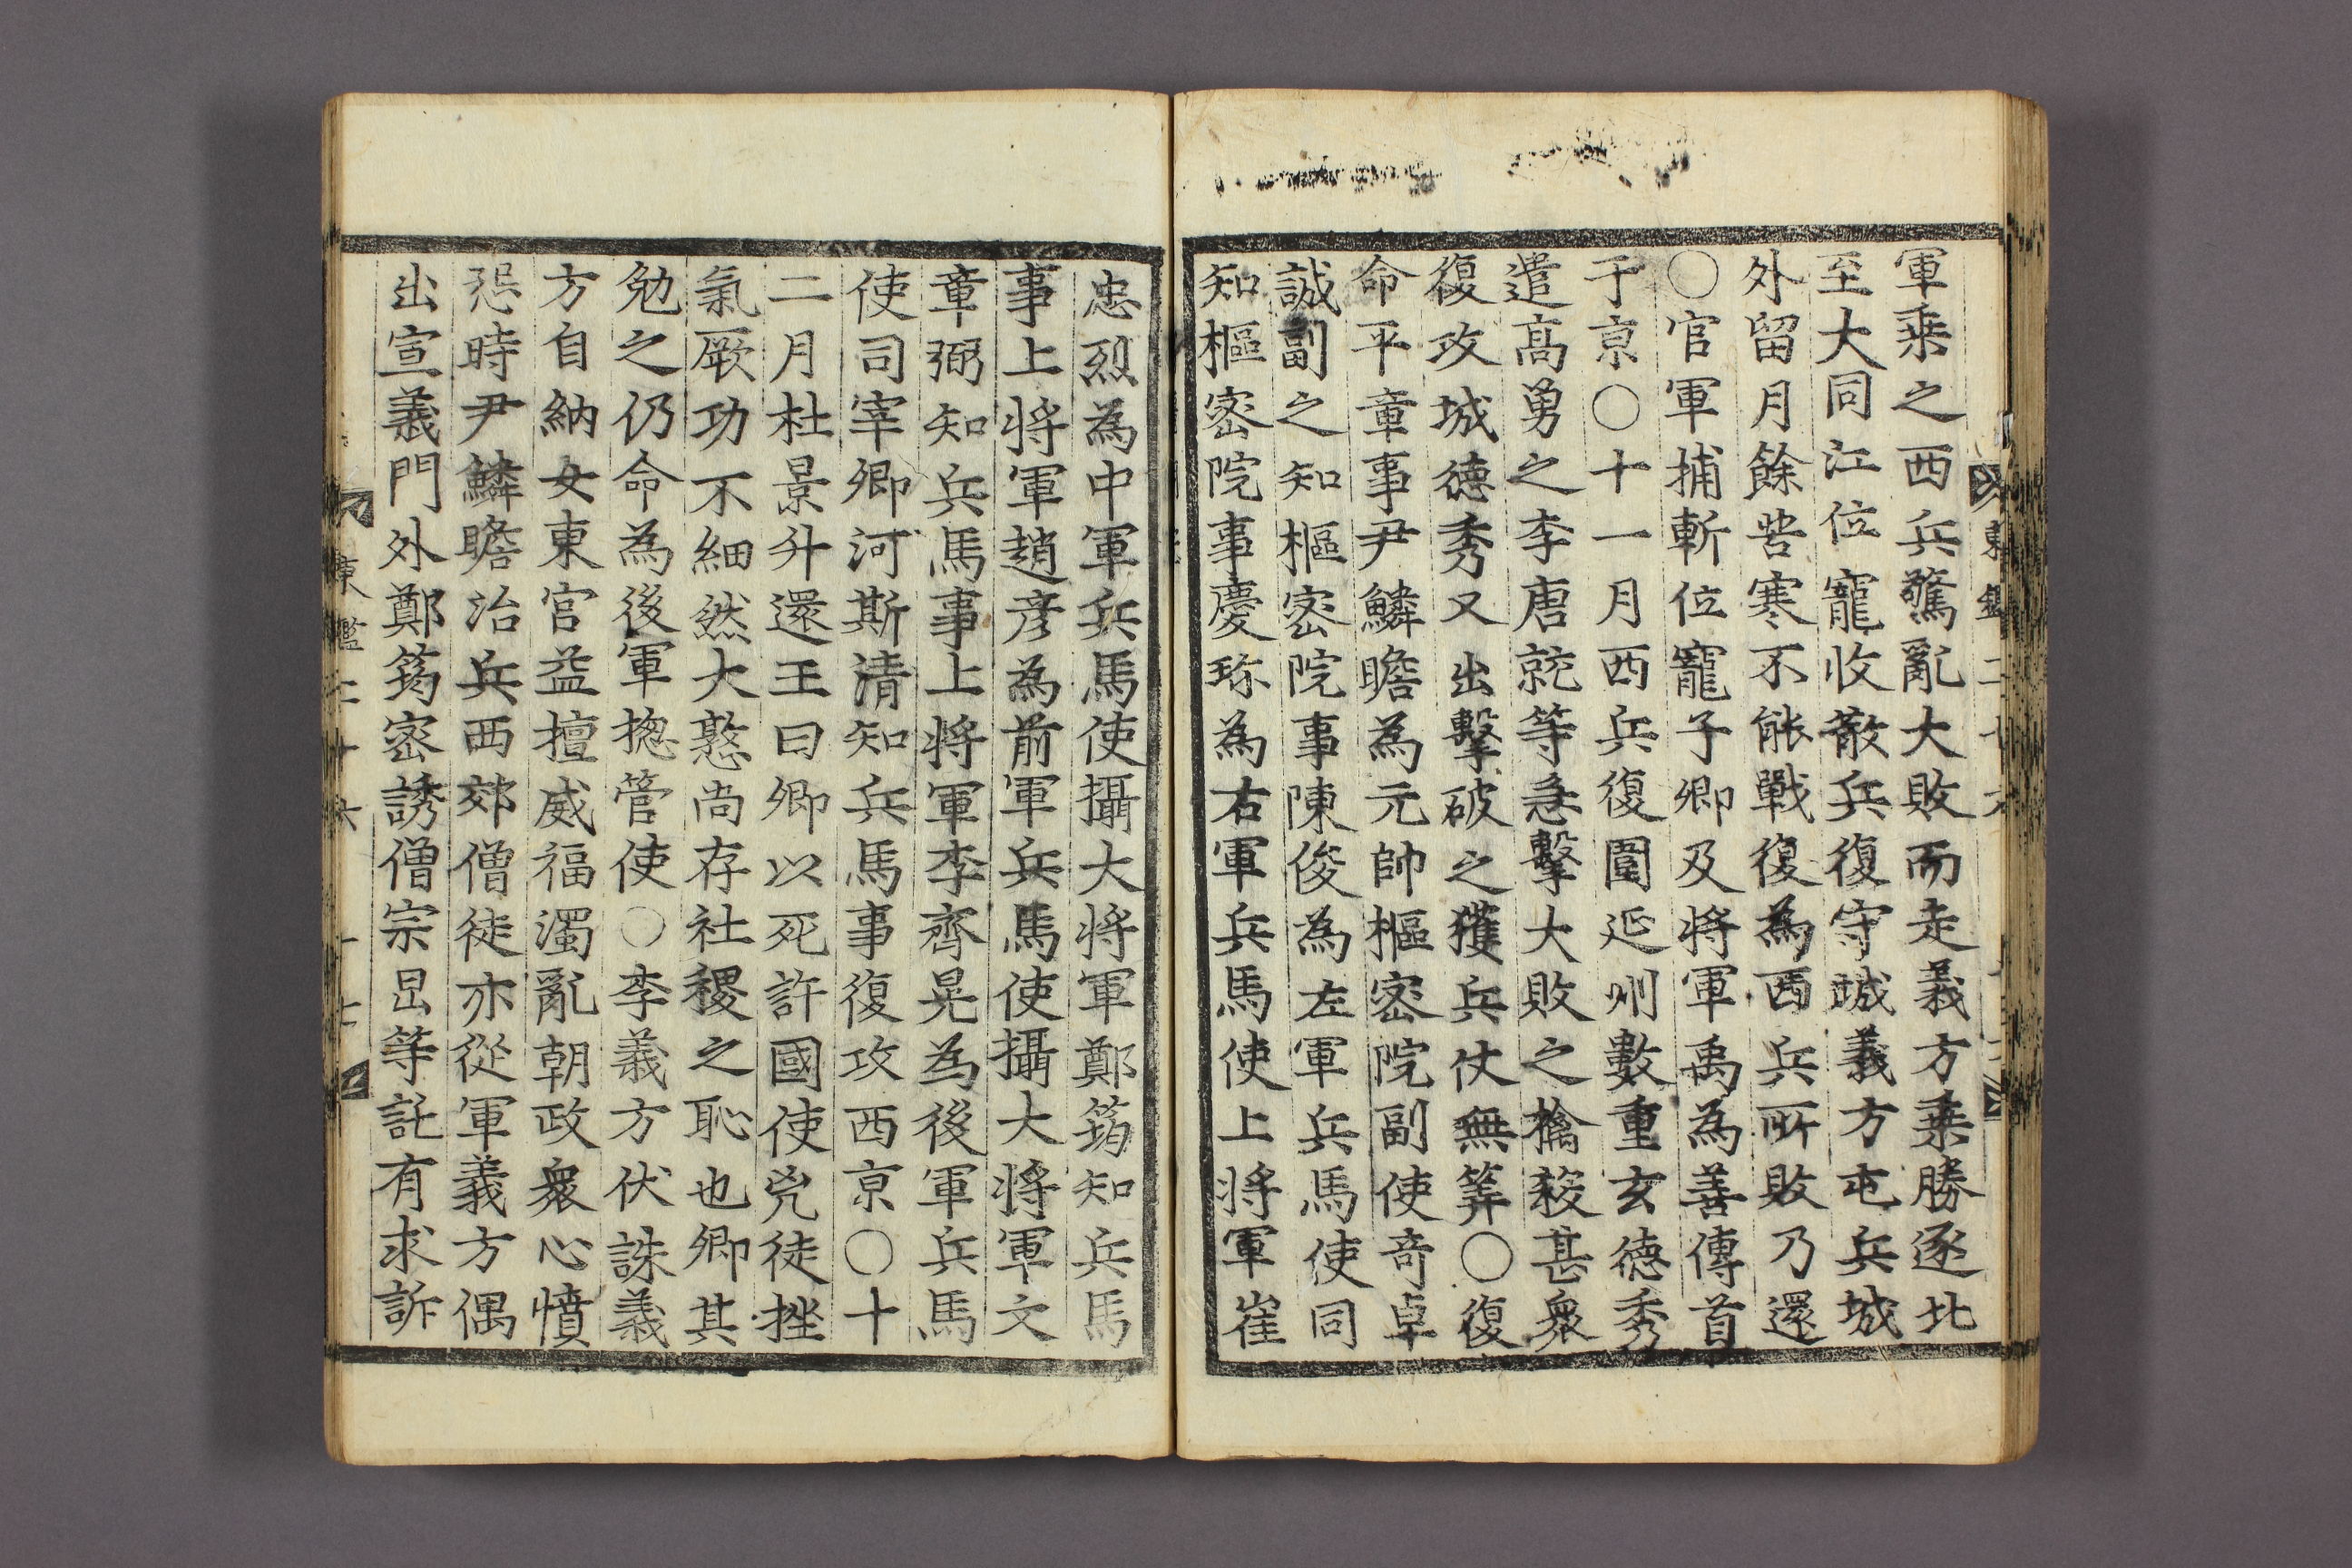 軍乗之西兵驚亂大敗而走義方乗勝逐北
至大同江位寵收散兵復守城義方屯兵城
外留月餘苦寒不能戰復為西兵所敗乃還
○官軍捕斬位寵子卿及将軍禹為善傳首
于京○十一月西兵復圍延州數重玄德秀
遣高勇之李唐就等急擊大敗之擒殺甚衆
復攻城德秀又出擊破之獲兵仗無筭○復
命平章事尹鱗瞻為元帥樞密院副使奇卓
誠副之知樞密院事陳俊為左軍兵馬使同
知樞密院事慶珎為右軍兵馬使上将軍崔
忠烈為中軍兵馬使攝大将軍鄭筠知兵馬
事上将軍趙彦為前軍兵馬使攝大将軍文
章弼知兵馬事上将軍李齊晃為後軍兵馬
使司宰卿河斯清知兵馬事復攻西京○十
二月杜景升還王曰卿以死許國使兇徒挫
氣厥功不細然大憝尚存社稷之恥也卿其
勉之仍命為後軍摠管使○李義方伏誅義
方自納女東宮益擅威福濁亂朝政衆心憤
怨時尹鱗瞻治兵西郊僧徒亦從軍義方偶
出宣義門外鄭筠密誘僧宗旵等託有求訴
東鑑二十六
十七